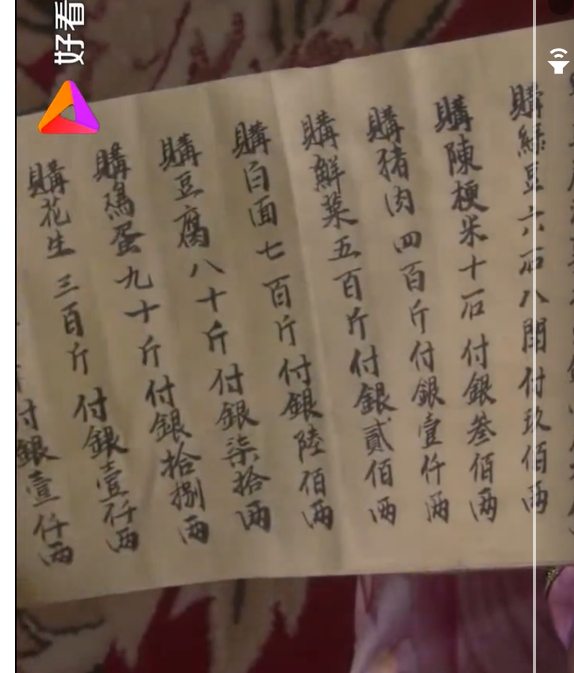 購綠豆六石八閗付玖佰兩
購陳梗米十石付銀叁佰兩
購猪肉四百斤付銀壹仟兩
購鮮菜五百斤付銀貳佰兩
購白面七百斤付銀陸佰兩
購豆腐八十斤付銀柒拾兩
購鷄蛋九十斤付銀拾捌兩
購花生三百斤付銀壹仟兩
付銀壹仟兩
好看